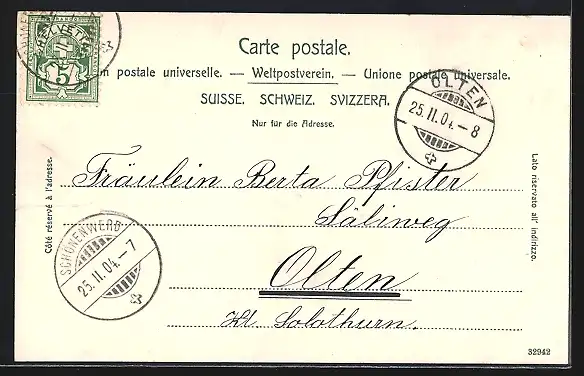 Carte postale.
on postale universelle. — Weltpostverein. — Unione postale universale.
SUISSE. SCHWEIZ. SVIZZERA.
Nur für die Adresse.
HELVETIA
5
OLTEN
25.II.04.-8
Côté réservé à l'adresse.
Lato riservato all' indirizzo.
Fräulein Berta Pfister
Säliweg
Olten
Kt. Solothurn.
SCHÖNENWERD
25.II.04.-7
32942